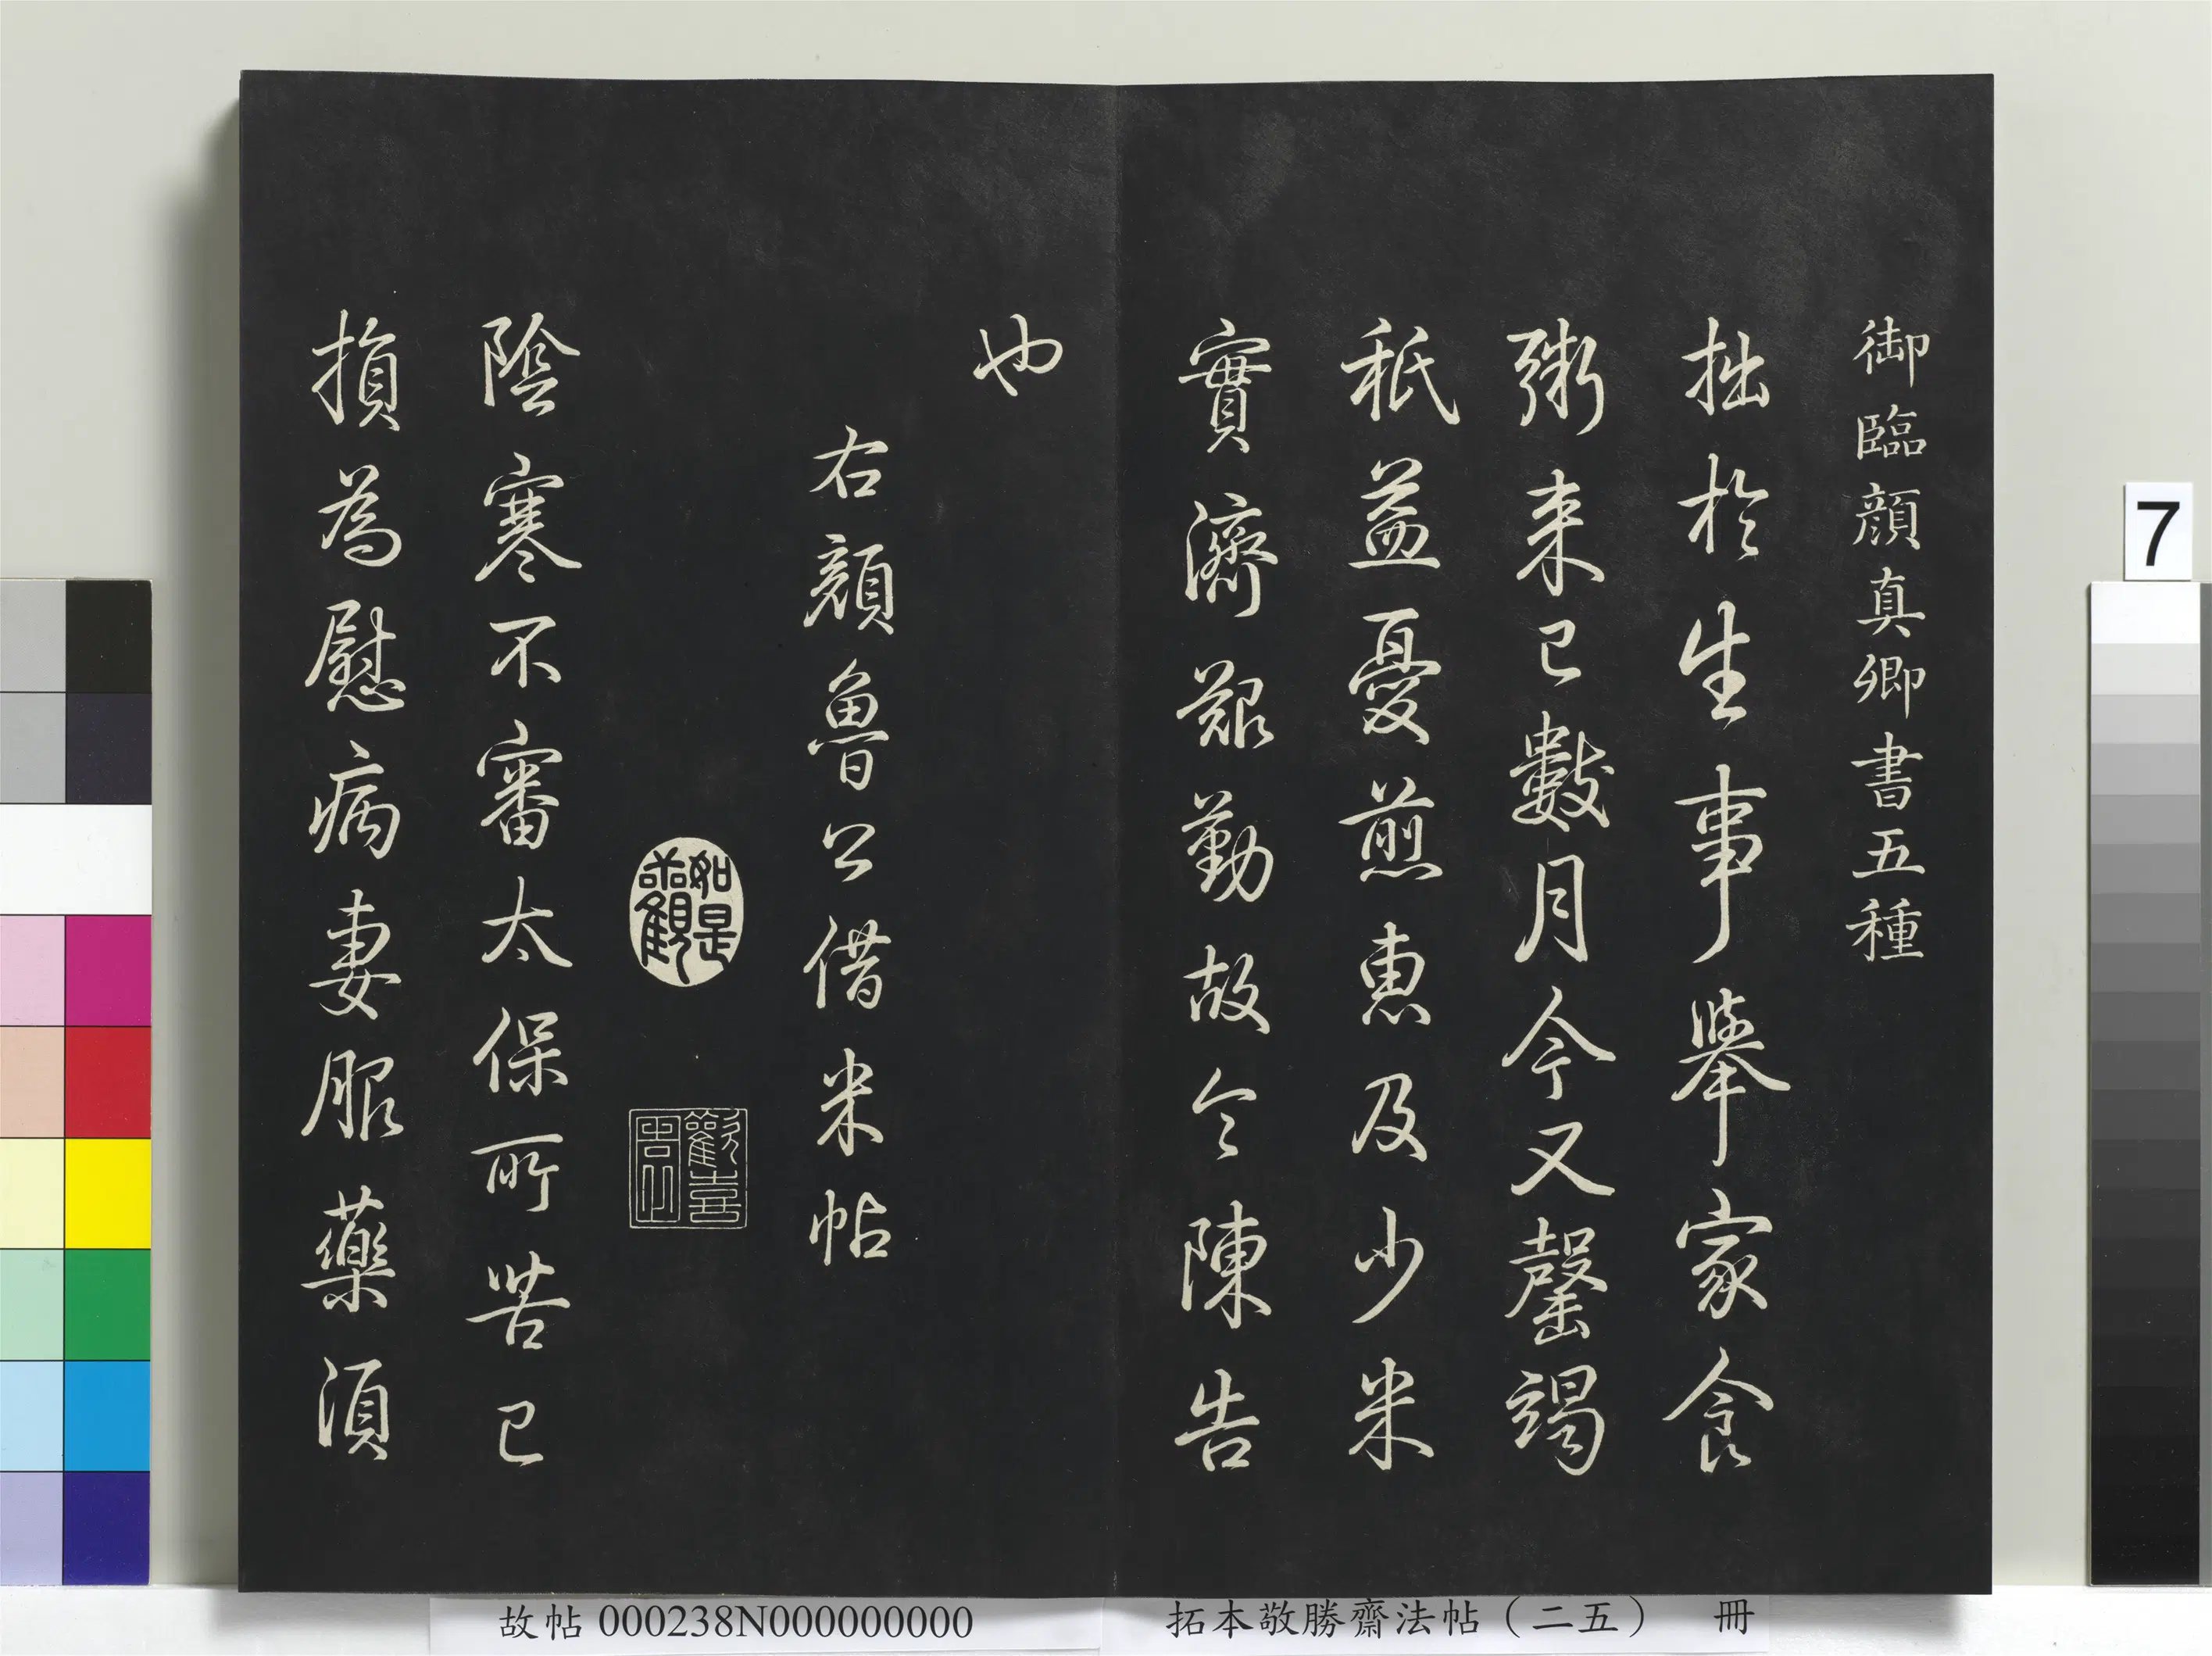 御臨顔真卿書五種
拙於生事舉家食
粥来已數月今又罄竭
秖益憂煎惠及少米
實濟艱勤故令陳告
也
右顔魯公借米帖
如是
觀
陰寒不審太保所苦已
損為慰病妻服藥須
7
故帖 000238N000000000
拓本敬勝齋法帖（二五） 冊